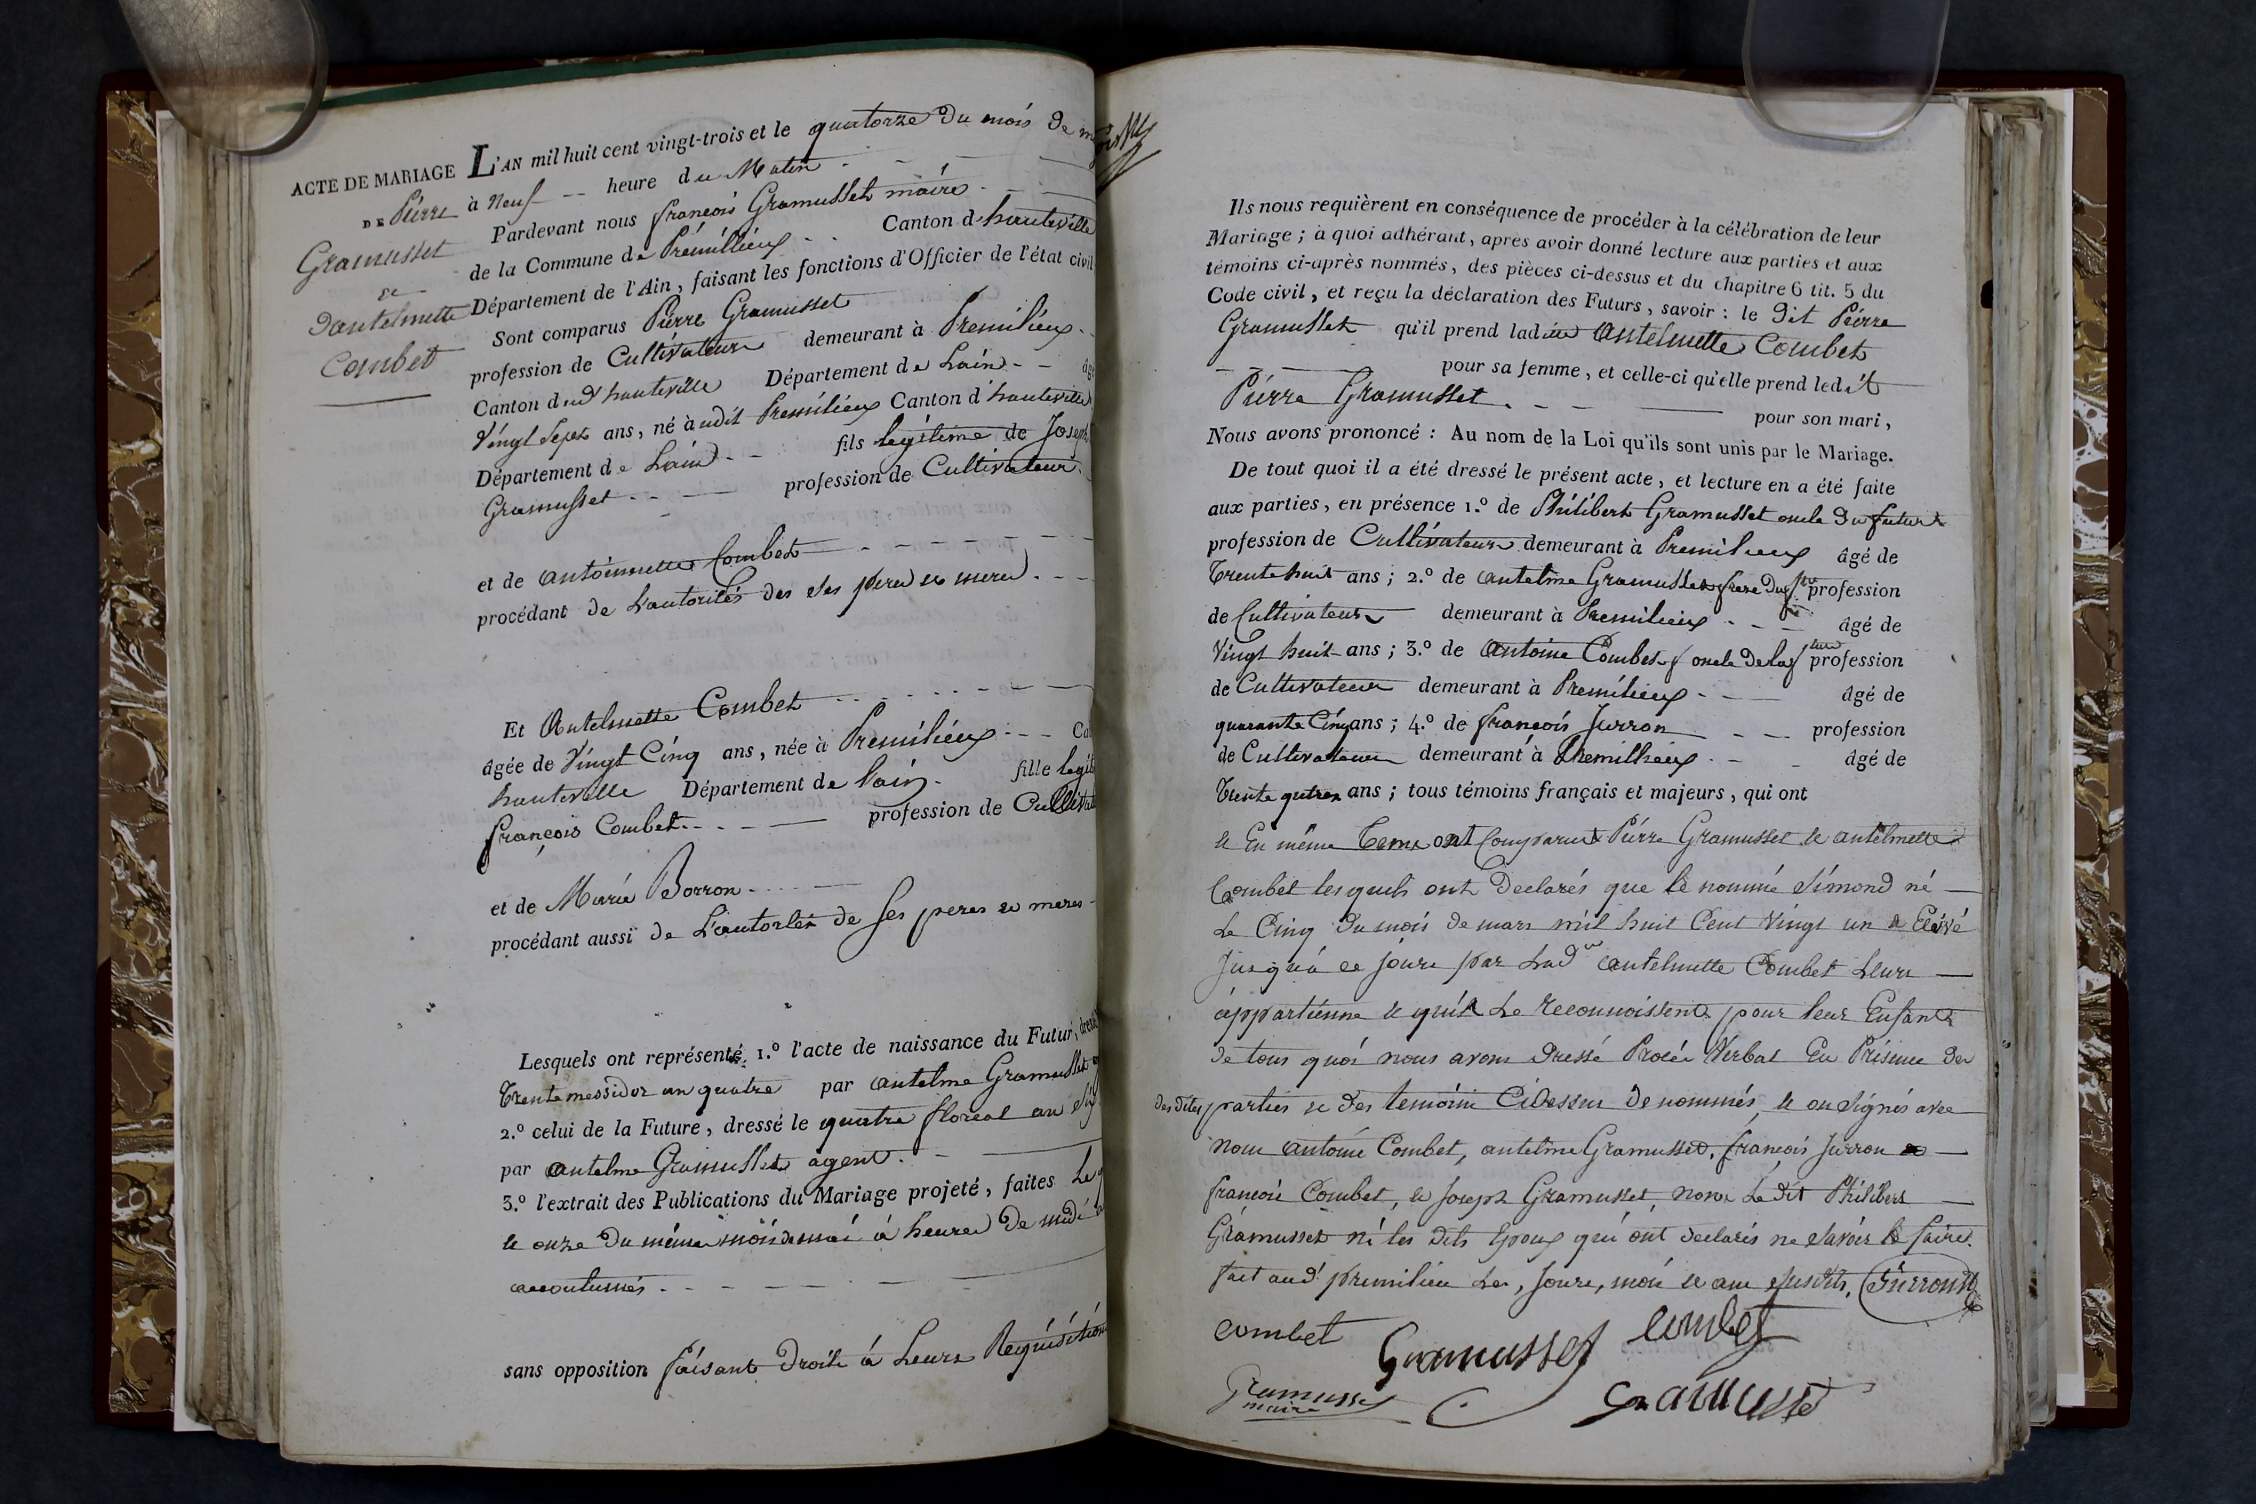 ACTE DE MARIAGE
DE Pierre
Gramusset
et
d'antelmette
Combet
L'AN mil huit cent vingt-trois et le quatorze du mois de
à Neuf -- heure du Matin
Pardevant nous françois Gramusset maire
de la Commune de Prémillieux Canton d'hauteville
Département de l'Ain, faisant les fonctions d'Officier de l'état civil
Sont comparus Pierre Gramusset
profession de Cultivateur demeurant à Premilieux
Canton dud hauteville Département de Lain - - âgé
Vingt Sept ans, né audit Premilieux Canton d'hauteville
Département de Lain - - fils legitime de Joseph
Gramusset - - profession de Cultivateur
et de antoinette Combet
procédant de L'autorités des ses pere et mere
Et Antelmette Combet
âgée de Vingt Cinq ans, née à Premilieux
hauteville Département de Lain fille
françois Combet profession de
et de Marie Borron
procédant aussi de L'autorités de ses peres et meres
Lesquels ont représenté 1.º l'acte de naissance du Futur,
Trente messidor an quatre par antelme Gramusset
2.º celui de la Future, dressé le quatre floreal an six
par antelme Gramusset agent.
3.º l'extrait des Publications du Mariage projeté, faites Le
et onze du même mois de mai à heure de midi
accoutumés
sans opposition faisant droit à Leurs Requisitions
Ils nous requièrent en conséquence de procéder à la célébration de leur
Mariage; à quoi adhérant, après avoir donné lecture aux parties et aux
témoins ci-après nommés, des pièces ci-dessus et du chapitre 6 tit. 5 du
Code civil, et reçu la déclaration des Futurs, savoir: le dit Pierre
Gramusset qu'il prend ladite Antelmette Combet
pour sa femme, et celle-ci qu'elle prend ledit
Pierre Gramusset pour son mari,
Nous avons prononcé: Au nom de la Loi qu'ils sont unis par le Mariage.
De tout quoi il a été dressé le présent acte, et lecture en a été faite
aux parties, en présence 1.º de Philibert Gramusset oncle du futur
profession de Cultivateur demeurant à Premilieux âgé de
Trente huit ans; 2.º de antelme Gramusset frere du profession
de Cultivateur demeurant à Premilieux âgé de
Vingt huit ans; 3.º de Antoine Combet oncle de la profession
de Cultivateur demeurant à Premilieux âgé de
quarante Cinq ans; 4.º de françois Jurron profession
de Cultivateur demeurant à Premillieux âgé de
Trente quatre ans; tous témoins français et majeurs, qui ont
et En même tems ont Comparut Pierre Gramusset et antelmette
Combet lesquels ont declarés que le nommé Simond né
Le Cinq du mois de mars mil huit Cent Vingt un et Elévé
Jusqu'à ce Jour par Lad.e antelmette Combet Leur
appartienne et qu'ils Le reconnoissent pour leur Enfant
de tous quoi nous avons dressé Procés Verbal En Présence des
desdites parties et des temoins Cidessus denommés, et on signés avec
Nous antoine Combet, antelme Gramusset, françois Jurron
françois Combet, et Joseph Gramusset, non Le dit Philibert
Gramusset ni les dits Epoux qui ont declarés ne savoir le faire.
fait aud.t premilieu Les, Jour, moi et an susdits,
combet
Gramusset
combet
Gramusset
maire
Gramusset